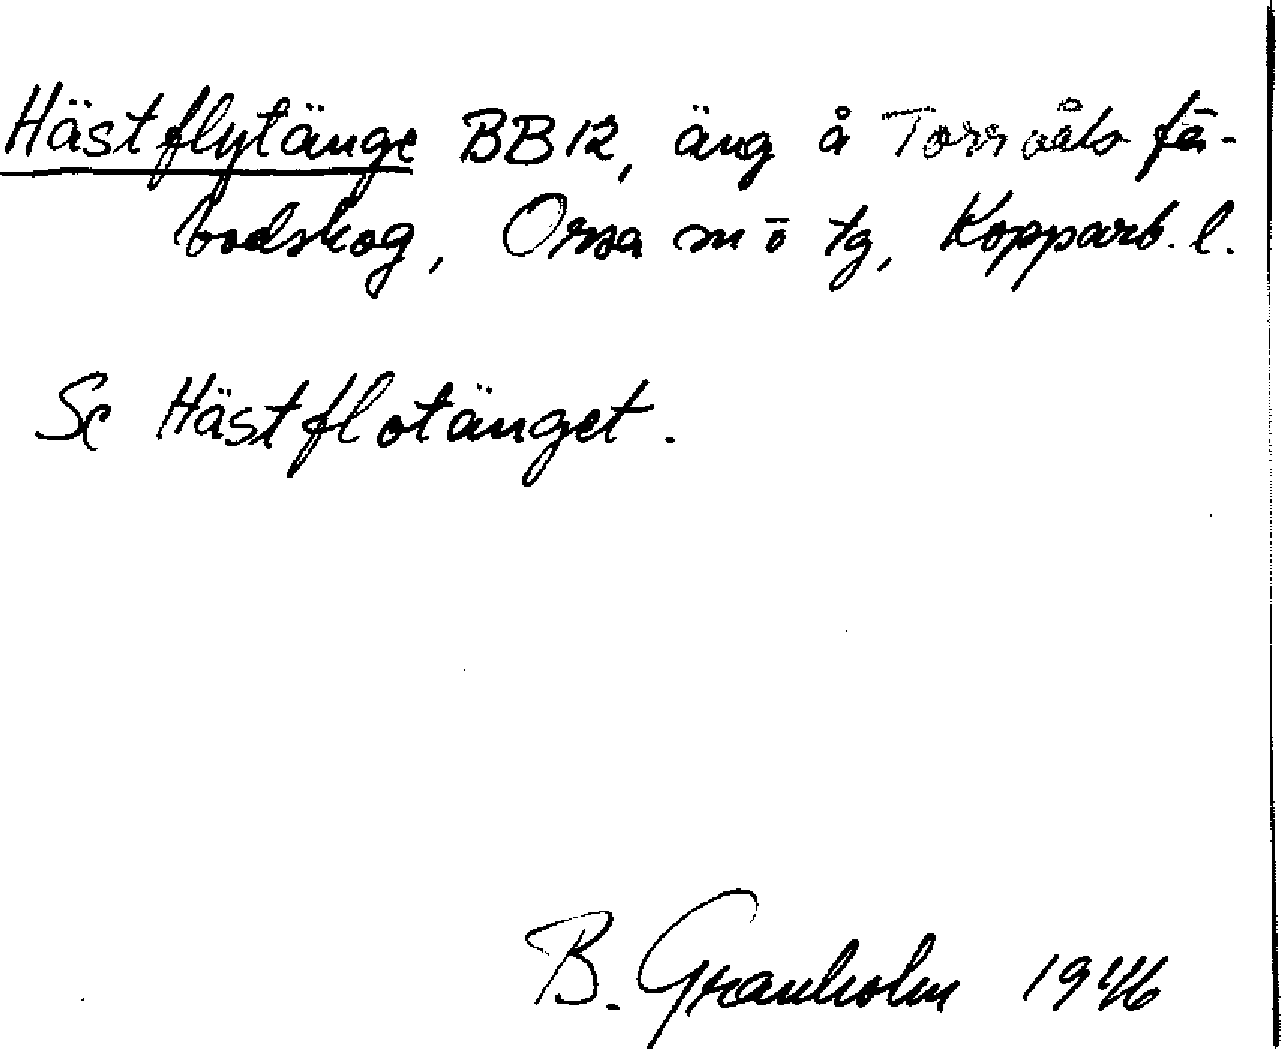 Hästflytänge BB12, äng å Torrvåls fä-
bodskog, Orsa m ō tg, Kopparb. l.
Se Hästflotänget.
B. Granholm 1946